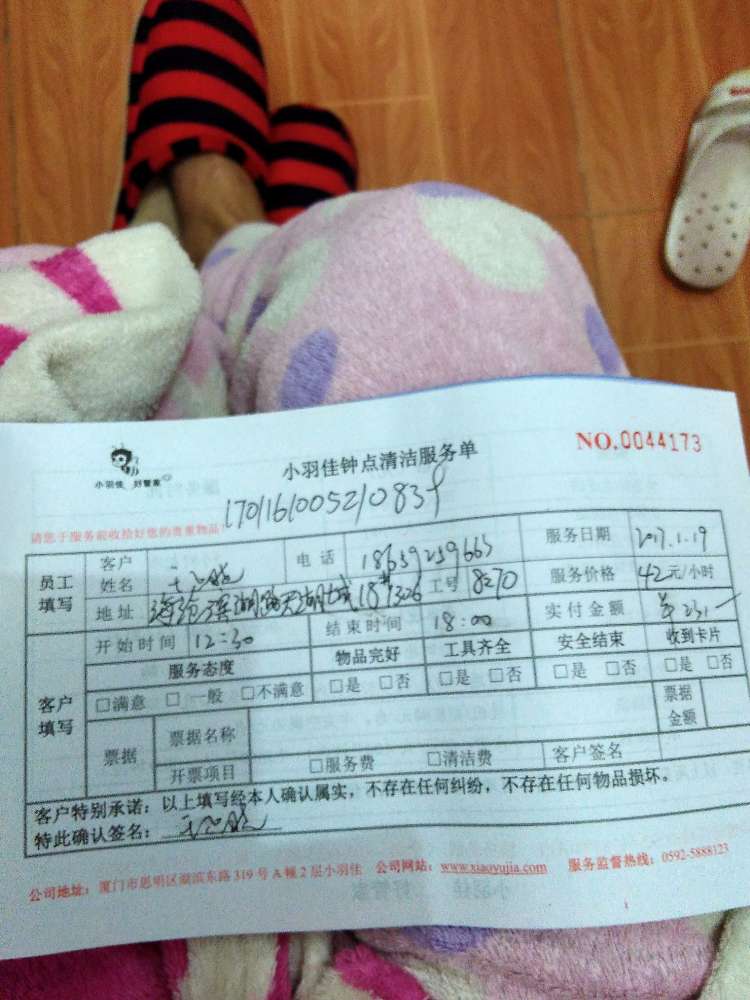 小羽佳 好管家
小羽佳钟点清洁服务单
NO.0044173
170161005210839
请您于服务前收拾好您的贵重物品
员工填写 客户姓名 电话 18659259665 服务日期 2017.1.19
地址 海沧滨湖路天湖城18#1326 工号 8270 服务价格 42元/小时
开始时间 12:30 结束时间 18:00 实付金额 ¥231
客户填写 服务态度 物品完好 工具齐全 安全结束 收到卡片
□满意 □一般 □不满意 □是 □否 □是 □否 □是 □否 □是 □否
票据 票据名称 票据金额
开票项目 □服务费 □清洁费 客户签名
客户特别承诺：以上填写经本人确认属实，不存在任何纠纷，不存在任何物品损坏。
特此确认签名：
公司地址：厦门市思明区湖滨东路319号A幢2层小羽佳 公司网站：www.xiaoyujia.com 服务监督热线：0592-5888123